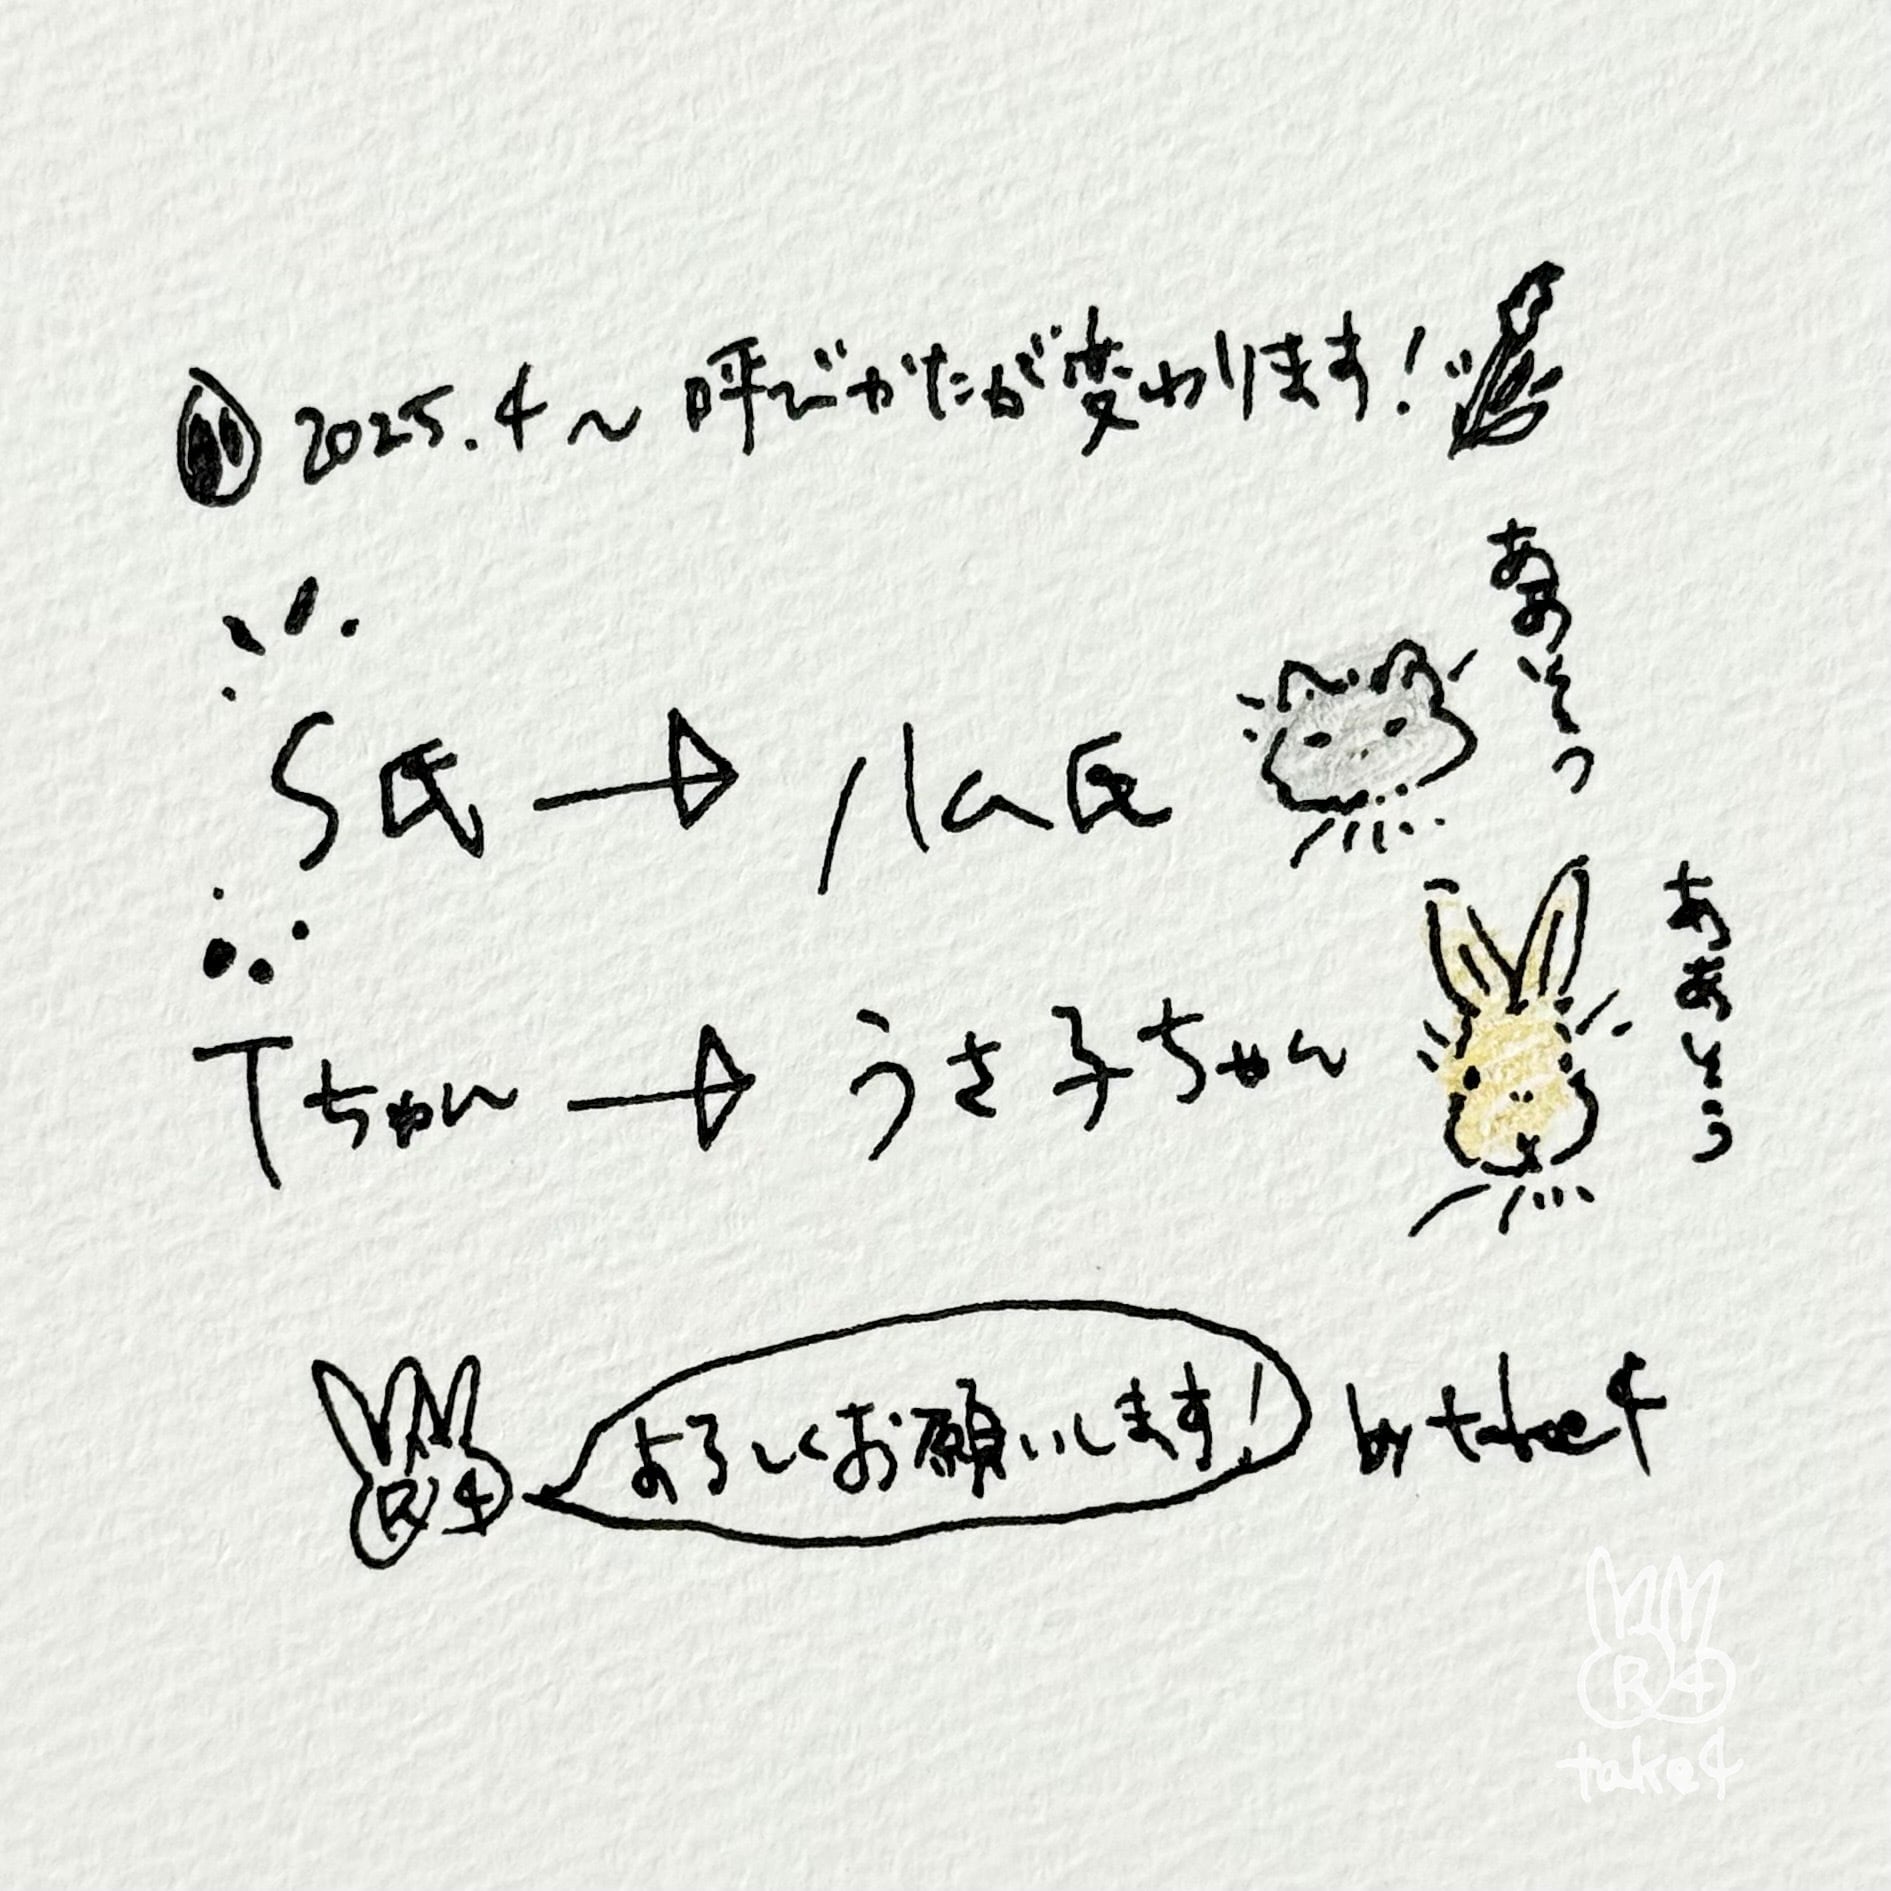 2025.4〜呼びかたが変わります!
S氏→ハム氏
ああそう
Tちゃん→うさ子ちゃん
ああそう
R4
よろしくお願いします!
by take4
R4
take4